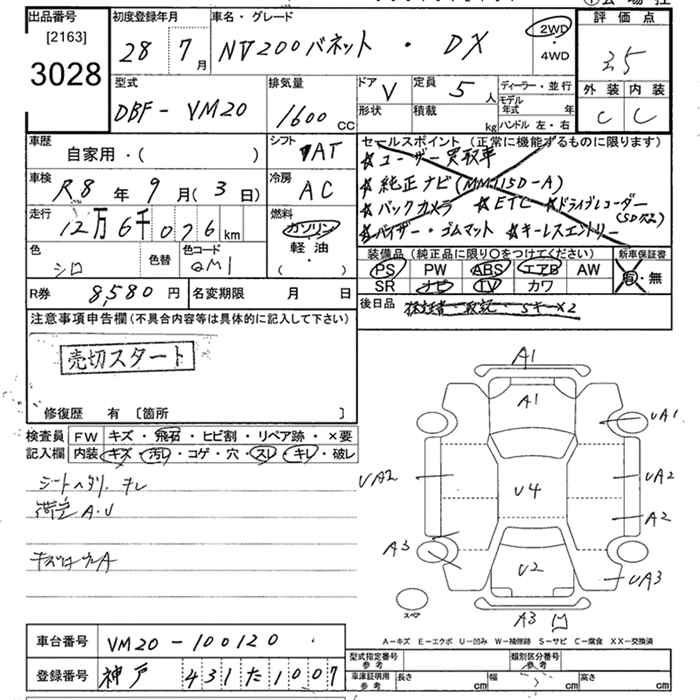 出品番号
[2163]
3028
初度登録年月
28 7月
車名・グレード
NV200バネット ・ DX
2WD
・4WD
評価点
3.5
外装 内装
C C
型式
DBF-VM20
排気量
1600 CC
ドア V
形状
定員 5人
積載 kg
ディーラー・並行
モデル年式 年
ハンドル 左・右
車歴
自家用・( )
シフト
AT
車検
R8年9月(3日)
冷房
AC
走行
12万6千076km
燃料
ガソリン
軽油
( ・ )
色
シロ
色替
色コード
QM1
セールスポイント(正常に機能するものに限ります)
☆ユーザー買取車
☆純正ナビ(MM115D-A)
☆バックカメラ ☆ETC ☆ドライブレコーダー
☆バイザー・ゴムマット ☆キーレスエントリー
装備品(純正品に限り○をつけてください)
新車保証書
PS PW ABS エアB AW
SR ナビ TV カワ
有・無
R券 8,580円
名変期限 月 日
後日品
注意事項申告欄(不具合内容等は具体的に記入して下さい)
売切スタート
修復歴 有 〔箇所 〕
検査員記入欄
FW キズ・飛石・ヒビ割・リペア跡・×要
内装 キズ・汚レ・コゲ・穴・スレ・キレ・破レ
シートヘタリ、キレ
荷室A・U
A1
A1
UA1
UA2
U4
UA2
A2
A3
U2
UA3
スペア
A3
A-キズ E-エクボ U-凹み W-補修跡 S-サビ C-腐食 XX-交換済
車台番号
VM20-100120
登録番号
神戸 431 た 1007
型式指定番号 参考
類別区分番号 参考
車庫証明用 参考
長さ cm 幅 cm 高さ cm